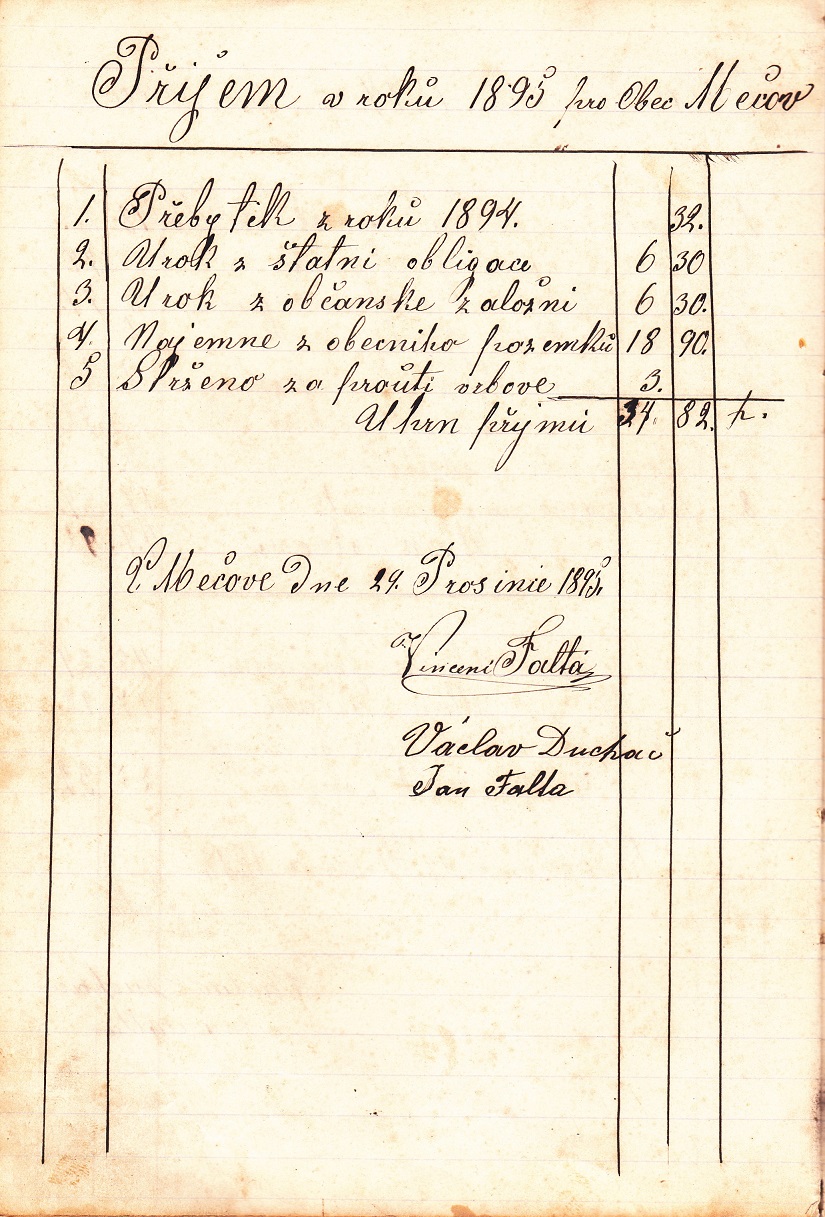 Přijem v roků 1895 pro Obec Mečov
1. Přebytek z roků 1894. 32.
2. Urok z štatni obligace 6 30
3. Urok z občanske založni 6 30.
4. Najemne z obecniho pozemků 18 90.
5 Strženo za prouti vrbove 3.
Uhrn přijmů 34. 82. h.
V Mečove Dne 29. Prosinie 1895.
Vincenc Falta
Václav Duchač
Jan Falta